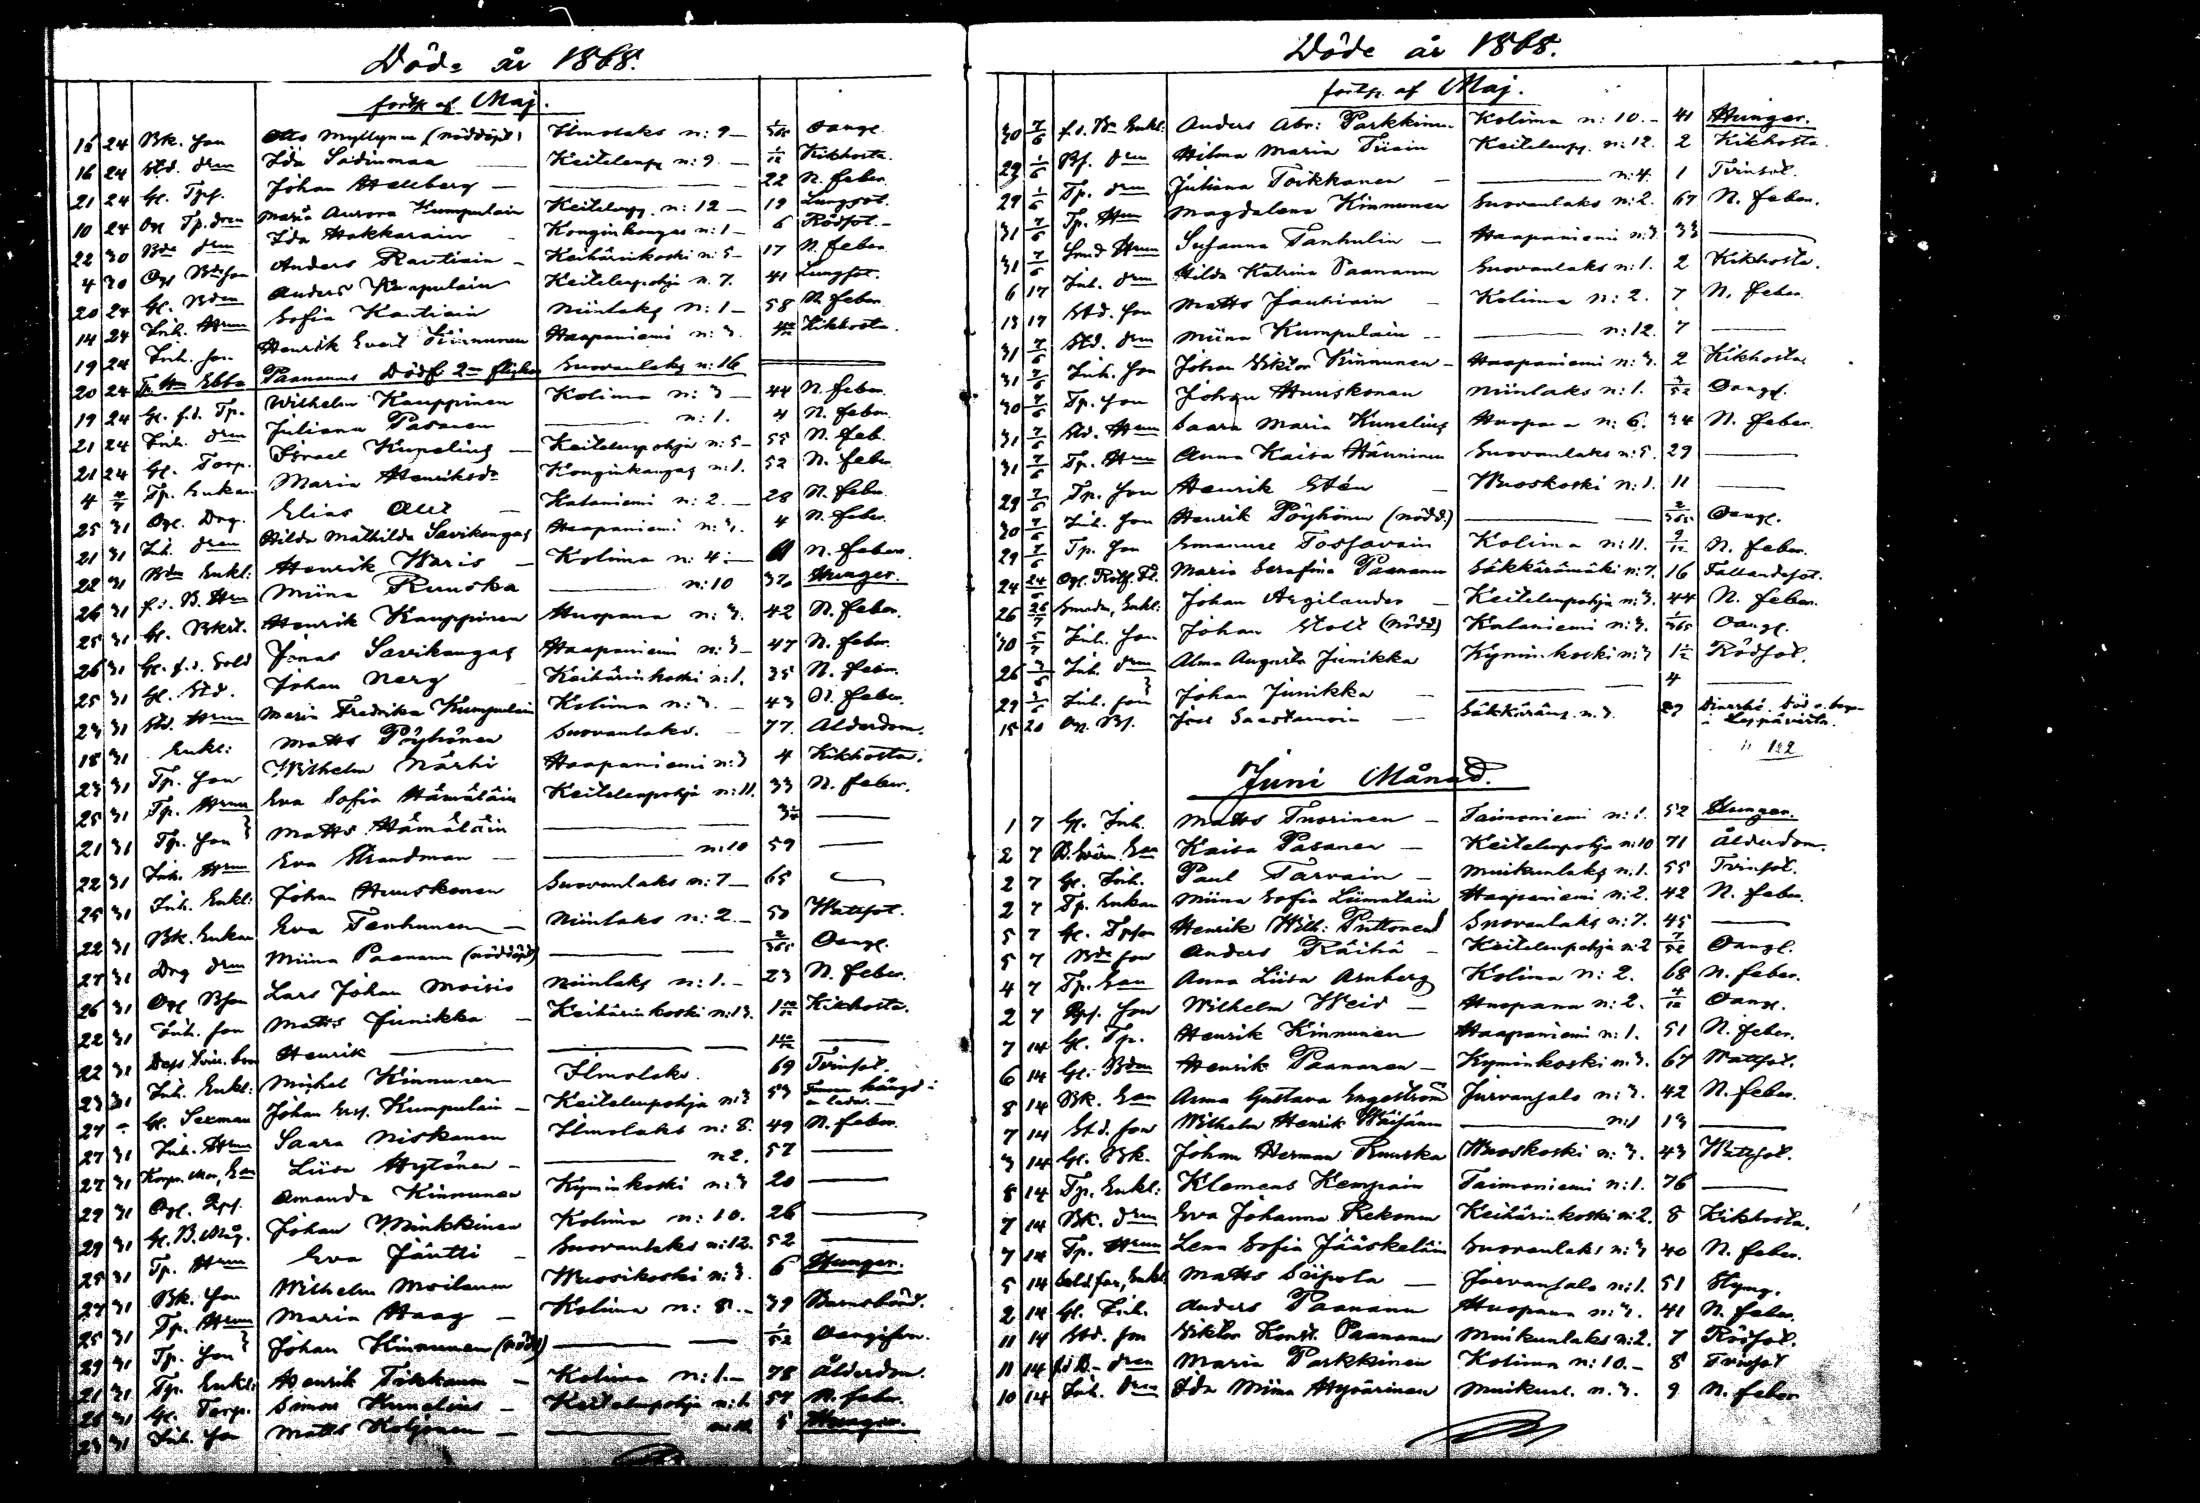 Döde år 1868.
forts. af Maj.
15 24 Bk. son Otto Myllynen (nöddöpt) Ilmolaks n: 9 1/365 Oangf.
16 24 Std. drn Ida Soidinmaa Keitelenp. n: 9. 1/12 Kikhosta.
21 24 Gl. Tps. Johan Hallberg 22 N. feber.
10 24 Og Tp. drn Maria Aurora Kumpulain Keitelenp. n: 12 19 Lungsot.
22 30 Bds drn Ida Hakkarain Konginkangas n: 1 6 Rödsot.
4 30 Og Bdsson Anders Rautiain Keihärinkoski n: 5 17 N. feber
20 24 Gl. Bden Anders Kumpulain Keitelenpohja n. 7. 41 Lungsot.
14 24 Inh. Hrun Sofia Rautiain Niinlaks n: 1 58 N. feber
19 24 Inh. son Henrik Evert Kinnunen Haapaniemi n: 3. Kikhosta.
20 24 Tp. Hru Ebba Paananens Dödf. 2ne flickor Suovanlaks n: 16
19 24 Gl. f.d. Tp. Wilhelm Kauppinen Kolima n: 3 44 N. feber.
21 24 Inh. drn Juliana Pasanen n: 1. 4 N. feber.
21 24 Gl. Torp. Israel Kunelius Keitelenpohja n: 5 55 N. feb.
4 Tp. Enkan Maria Henriksdr Konginkangas n: 1. 52 N. feber
25 31 Ogl. Drg. Elias Ollt Kalaniemi n: 2. 28 N. feber
21 31 Inh. drn Hilda Mathilda Savikangas Haapaniemi n: 3. 4 N. feber.
22 31 Bdn Enkl: Henrik Waris Kolima n: 4 61 N. feber.
26 31 f.d. B. Hru Miina Ruuska n: 10 Hunger.
25 31 Gl. Bkst. Henrik Kauppinen Huopana n: 3. 42 N. feber.
26 31 Gl. f.d. Sold Jonas Savikangas Haapaniemi n: 3 47 N. feber.
25 31 Gl. Std. Johan Nerg Keihärinkoski n: 1. 35 N. feber.
23 31 Std. Hrun Maria Fredrika Kumpulain Kolima n: 3. 43 N. feber.
18 31 Enkl: Matts Pöyhönen Suovanlaks. 77. Ålderdom.
23 31 Tp. son Wilhelm Närhi Haapaniemi n: 3 4 Kikhosta.
25 31 Tp. Hrun Eva Sofia Hämäläin Keitelenpohja n: 11. 33 N. feber.
21 31 Tp. son Matts Hämäläin
22 31 Inh. Hrun Eva Strandman n: 10 59
25 31 Inh. Enkl: Johan Huuskonen Suovanlaks n: 7 65
22 31 Bk. Enkan Eva Tenhunen Niinlaks n: 2. 50 Wattsot.
27 31 Drg drn Miina Paananen (nöddöpt) 2/365 Oangf.
26 31 Ogl Bson Lars Johan Moisio Niinlaks n: 1. 23 N. feber.
22 31 Inh. son Matts Junikka Keihärinkoski n: 13. Kikhosta.
22 31 Henrik
23 31 Inh. Enkl: Mickel Kinnunen Ilmolaks. 69 Tvinsot.
27 Gl. Sexman Johan Kumpulain Keitelenpohja n: 3 53
27 31 Inh. Hrun Saara Niskanen Ilmolaks n: 8. 49 N. feber.
27 31 Liisa Hytönen n 2. 57
29 31 Ogl. Rps. Amanda Kinnunen Kyminkoski n: 3 20
29 31 Gl. B. Måg. Johan Minkkinen Kolima n: 10. 26
25 31 Tp. Hrun Eva Jäntti Suovanlaks n: 12. 52
27 31 Bk. son Wilhelm Moilanen Wuosikoski n: 3. 6 Hunger.
25 31 Tp. Hrun Maria Haag Kolima n: 8. 39 Barnsbörd.
29 31 Tp. son Johan Kinnunen (nödd) 1/52 Oangifven.
21 31 Tp. Enkl: Henrik Toikkanen Kolima n: 1. 78 Ålderdom.
28 31 Gl. Torp. Simon Kunelius Keitelenpohja n: 1. 54 N. feber.
23 31 Inh. son Matts Koljonen 5 Hunger.
Döde år 1868.
forts. af Maj.
30 7/6 f.d. Bn Enkl: Anders Abr: Parkkinen Kolima n: 10. 41 Hunger.
29 1/6 Bf. drn Hilma Maria Tiiain Keitelenp. n: 12. 2 Kikhosta.
29 1/6 Tp. drn Juliana Toikkanen n: 4. 1 Tvinsot.
31 7/6 Tp. Hrun Magdalena Kinnunen Suovanlaks n: 2. 67 N. feber.
31 7/6 Smd Hrun Susanna Tanhulin Haapaniemi n: 3. 33
6 17 Inh. drn Hilda Katrina Paananen Suovanlaks n: 1. 2 Kikhosta.
13 17 Std. son Matts Jauhiain Kolima n: 2. 7 N. feber.
31 7/6 Std. drn Miina Kumpulain n: 12. 7
31 7/6 Inh. son Johan Viktor Kinnunen Haapaniemi n: 3. 2 Kikhosta
30 7/6 Tp. son Johan Huuskonen Niinlaks n: 1. Oangf.
31 7/6 Std. Hrun Saara Maria Kunelius Huopana n: 6. 34 N. feber.
31 7/6 Tp. Hrun Anna Kaisa Hänninen Suovanlaks n: 5. 29
29 7/6 Tp. son Henrik Stén Wuoskoski n: 1. 11
30 7/6 Inh. son Henrik Pöyhönen (nödd.) 2/365 Oangf.
29 7/6 Tp. son Emanuel Tossavain Kolima n: 11. 9/12 N. feber.
24 Maria Serafina Paananen Säkkärämäki n: 7. 16 Fallandesot.
26 Johan Argilander Keitelenpohja n: 3. 44 N. feber.
30 Inh. son Johan Stolt (nödd) Kalaniemi n: 3. 1/365 Oangf.
26 Inh. drn Alma Augusta Junikka Kyminkoski n: 3 1 1/2 Rödsot.
29 Inh. son Johan Junikka 4
15 20 Og. Bf. Joel Saastamoin Säkkäräm. n. 3. 27 Diarrhé. Död o. begr. i Leppävirta.
122
Juni Månad.
1 7 Gl. Inh. Matts Tuorinen Taimoniemi n: 1. 52 Hunger.
2 7 Kaisa Pasanen Keitelenpohja n: 10 71 Ålderdom.
2 7 Gl. Inh. Paul Tarvain Muikunlaks n: 1. 55 Tvinsot.
2 7 Tp. Enkan Miina Sofia Liimatain Haapaniemi n: 2. 42 N. feber.
5 7 Gl. Tpson Henrik Wilh: Puttonen Suovanlaks n: 7. 45
5 7 Bds son Anders Räihä Keitelenpohja n: 2 7/52 Oangf.
4 7 Tp. Ean Anna Liisa Arnberg Kolima n: 2. 68 N. feber.
2 7 Rps. son Wilhelm Weid Huopana n: 2. 4/12 Oangf.
7 14 Gl. Tp. Henrik Kinnunen Haapaniemi n: 1. 51 N. feber.
6 14 Gl. Bdn Henrik Paananen Kyminkoski n: 3. 67 Wattsot.
8 14 Bk. Ean Anna Gustava Engeström Jurvansalo n: 3. 42 N. feber.
7 14 Std. son Wilhelm Henrik Wäisänen n: 1 13
3 14 Gl. Bk. Johan Herman Ruuska Wuoskoski n: 3. 43 Wattsot.
8 14 Tp. Enkl: Klemens Kempain Taimoniemi n: 1. 76
7 14 Bk. drn Eva Johanna Rekonen Keihärinkoski n: 2. 8 Kikhosta.
7 14 Tp. Hrun Lena Sofia Jääskeläin Suovanlaks n: 3 40 N. feber.
5 14 Matts Siipola Jurvansalo n: 1. 51 Styng.
2 14 Gl. Inh. Anders Paananen Huopana n: 3. 41 N. feber.
11 14 Std. son Viktor Konst. Paananen Muikunlaks n: 2. 7 Rödsot.
11 14 f.d. B. drn Maria Parkkinen Kolima n: 10. 8 Tvinsot
10 14 Inh. drn Ida Miina Hyvärinen Muikunl. n. 3. 9 N. feber.